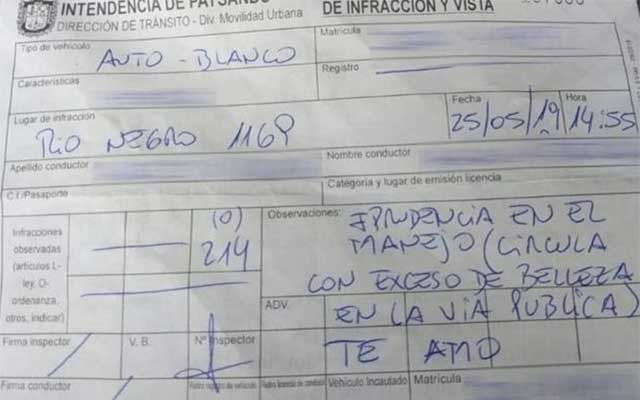 INTENDENCIA DE PAYSANDÚ
DE INFRACCIÓN Y VISTA
DIRECCIÓN DE TRÁNSITO - Div. Movilidad Urbana
Tipo de vehículo
AUTO - BLANCO
Matrícula
Características
Registro
Lugar de infracción
RIO NEGRO 1169
Fecha
25/05/19
Hora
14:55
Apellido conductor
Nombre conductor
C.I/Pasaporte
Categoría y lugar de emisión licencia
Infracciones
observadas
(artículos L-
ley, O-
ordenanza,
otros, indicar)
(O)
214
Observaciones:
IPRUDENCIA EN EL
MANEJO (CIRCULA
CON EXCESO DE BELLEZA
EN LA VIA PUBLICA)
TE AMO
ADV.
Firma inspector
V. B.
Nº Inspector
Firma conductor
Retiro licencia de conducir
Vehículo Incautado
Matrícula